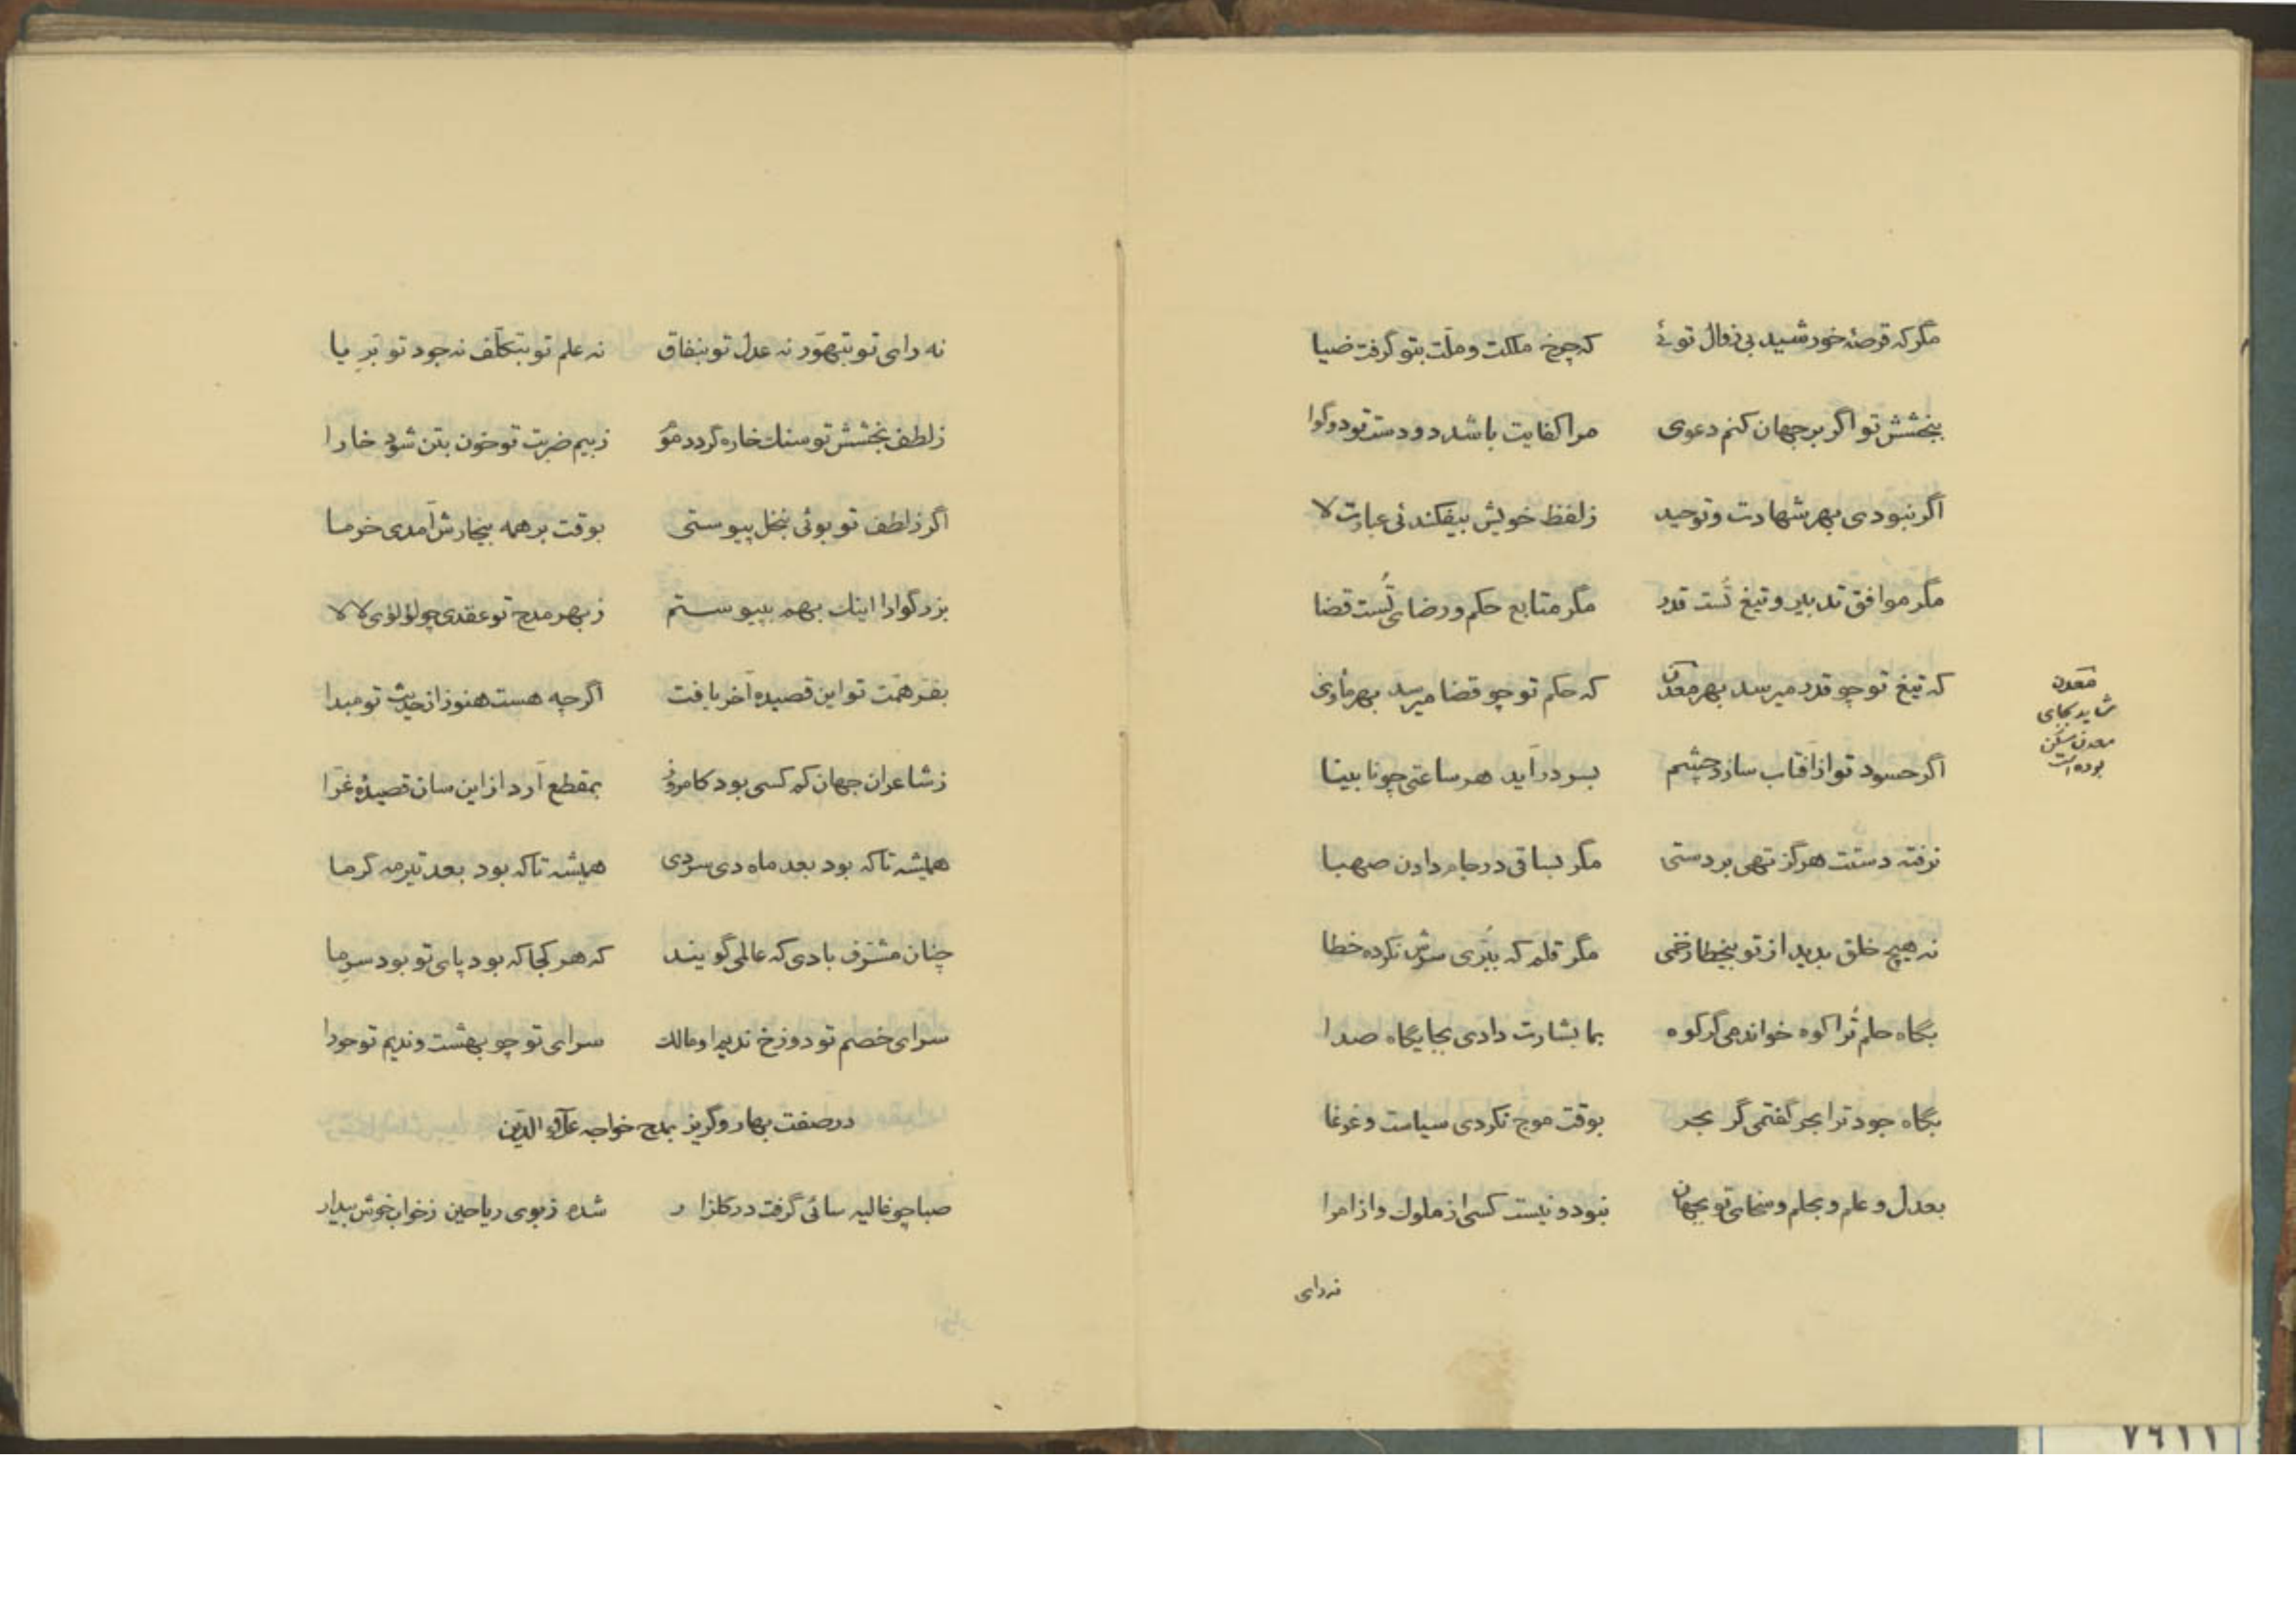 مگر که قرصهٔ خورشید بی زوال توئے که چرخ ملکت و ملّت بتو گرفت ضیا
ببخشش تو اگر بر جهان کنم دعوی مرا کفایت باشد دو دست تو دو گوا
اگر نبودی بهر شهادت و توحید ز لفظ خویش بیفکندئی عبارت لا
مگر موافق تدبیر و تیغ تُست قدر مگر متابع حکم و رضای تُست قضا
که تیغ تو چو قدر میرسد بهر معدن که حکم تو چو قضا میرسد بهر مأوی
اگر حسود تو از آفتاب سازد چشم بسر درآید هر ساعتی چو نابینا
نرفته دستت هرگز تهی بر دستی مگر بساقی در جام دادن صهبا
نه هیچ خلق بدید از تو بیخطا زخمی مگر قلم که ببُری سرش نکرده خطا
بگاه حلم تُرا کوه خواندمی گر کوه بما بشارت دادی بجایگاه صدا
بگاه جود ترا بحر گفتمی گر بحر بوقت موج نکردی سیاست و غوغا
بعدل و علم و بحلم و سخای تو بجهان نبود و نیست کسی از ملوک و از امرا
نه رای
معدن
شاید بجای
معدن مسکن
بوده است
نه رای تو بتهوّر نه عدل تو بنفاق نه علم تو بتکلّف نه جود تو بَرِیا
ز لطف بخشش تو سنك خاره گردد مُو ز بیم ضربت تو خون بتن شود خارا
اگر ز لطف تو بوئی بنخل پیوستی بوقت بر همه بیخار آمدی خرما
بزرگوارا اینك بهم بپیوستم ز بهر مدح تو عقدی چو لؤلؤی لالا
بفرّ همّت تو این قصیده آخر یافت اگرچه هست هنوز از حدیث تو مبدا
ز شاعران جهان کم کسی بود کامروز بمقطع آرد از این سان قصیدهٔ غرّا
همیشه تا که بود بعد ماه دی سردی همیشه تا که بود بعد تیرمه گرما
چنان مشرّف بادی که عالمی گویند که هر کجا که بود پای تو بود سرِ ما
سرای خصم تو دوزخ ندیم او مالك سرای تو چو بهشت و ندیم تو حورا
در صفت بهار و گریز بمدح خواجه علاء الدّین
صبا چو غالیه سائی گرفت در گلزار شده ز بوی ریاحین ز خواب خوش بیدار
۷۶۱۱